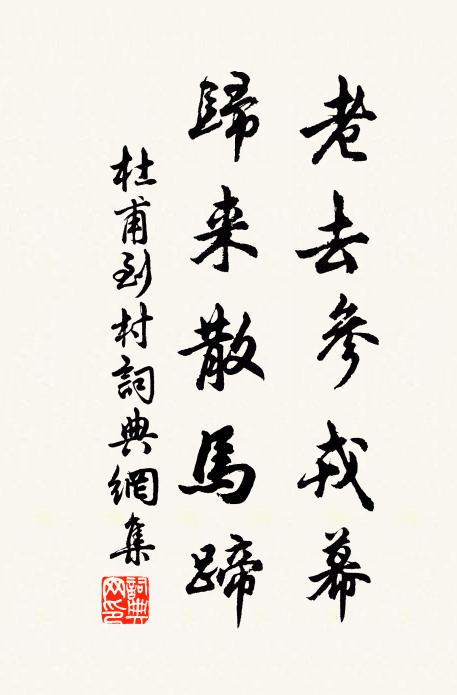 老去參戎幕
歸来散馬蹄
杜甫到村詞典網集
詞典网印